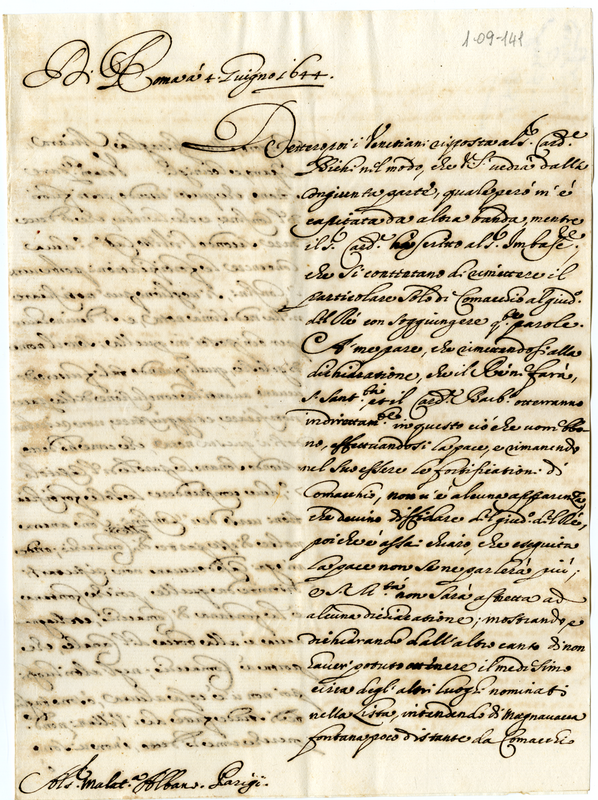 1-09-141
Di Roma à 4. Giugno 1644.
Dettero poi i Venetiani risposta al S.r Card.e
Bichi nel modo, che V.S. vedrà dalla
congiunta parte, quale però m'è
capitata da altra banda, mentre
il S.r Card.e ha scritto al S.r Imbasc.re
che si contentano di rimettere il
particolare solo di Comacchio al giud.o
del Rè con soggiungere q.te parole.
A me pare, che rimettendosi alla
dichiaratione, che il Rè ne farà,
S. Sant.tà et il Card.l Barb.o otterranno
indirettam.te in questo ciò che vorrebbo-
no, effettuandosi la pace, e rimanendo
nel suo essere le fortificationi di
Comacchio, non v'è alcuna apparenza,
che devino diffidare del giud.o del Rè,
poiche è assai chiaro, che eseguita
la pace non se ne parlerà più;
e S. M.tà non sarà astretta ad
alcuna dichiaratione; mostrando, e
dichiarando dall'altro canto di non
haver potuto ottenere il medesimo
circa degl'altri luoghi nominati
nella Lista, intendendo di Magnavacca
fontana poco distante da Comacchio
Al S.r Malat.a Alban.o Parigi.